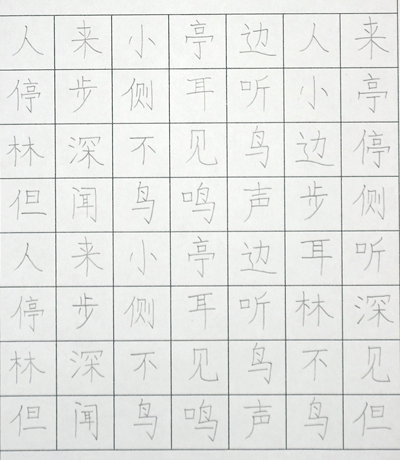 人来小亭边人来
停步侧耳听小亭
林深不见鸟边停
但闻鸟鸣声步侧
人来小亭边耳听
停步侧耳听林深
林深不见鸟不见
但闻鸟鸣声鸟但